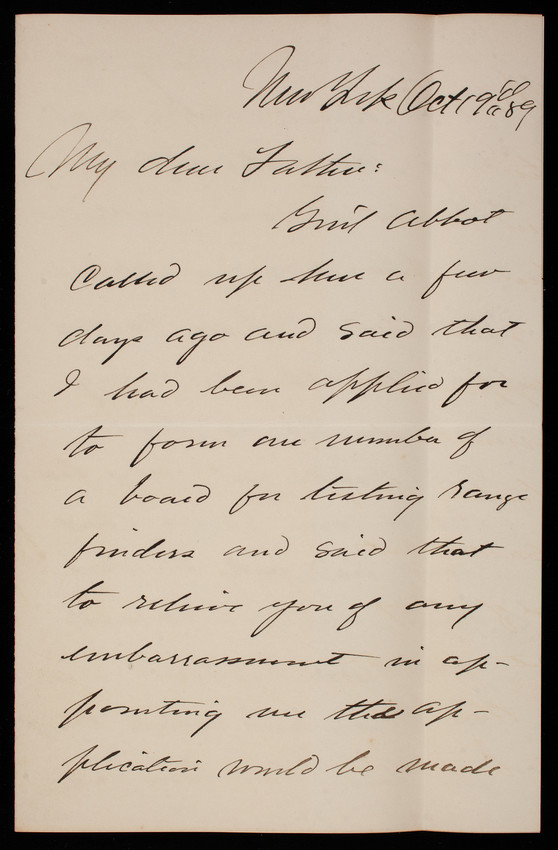 New York Oct 19th 89
My dear Father:
Genl Abbot
called up here a few
days ago and said that
I had been applied for
to form one member of
a board for testing range
finders and said that
to relieve you of any
embarrassment in ap-
pointing me the ap-
plication would be made